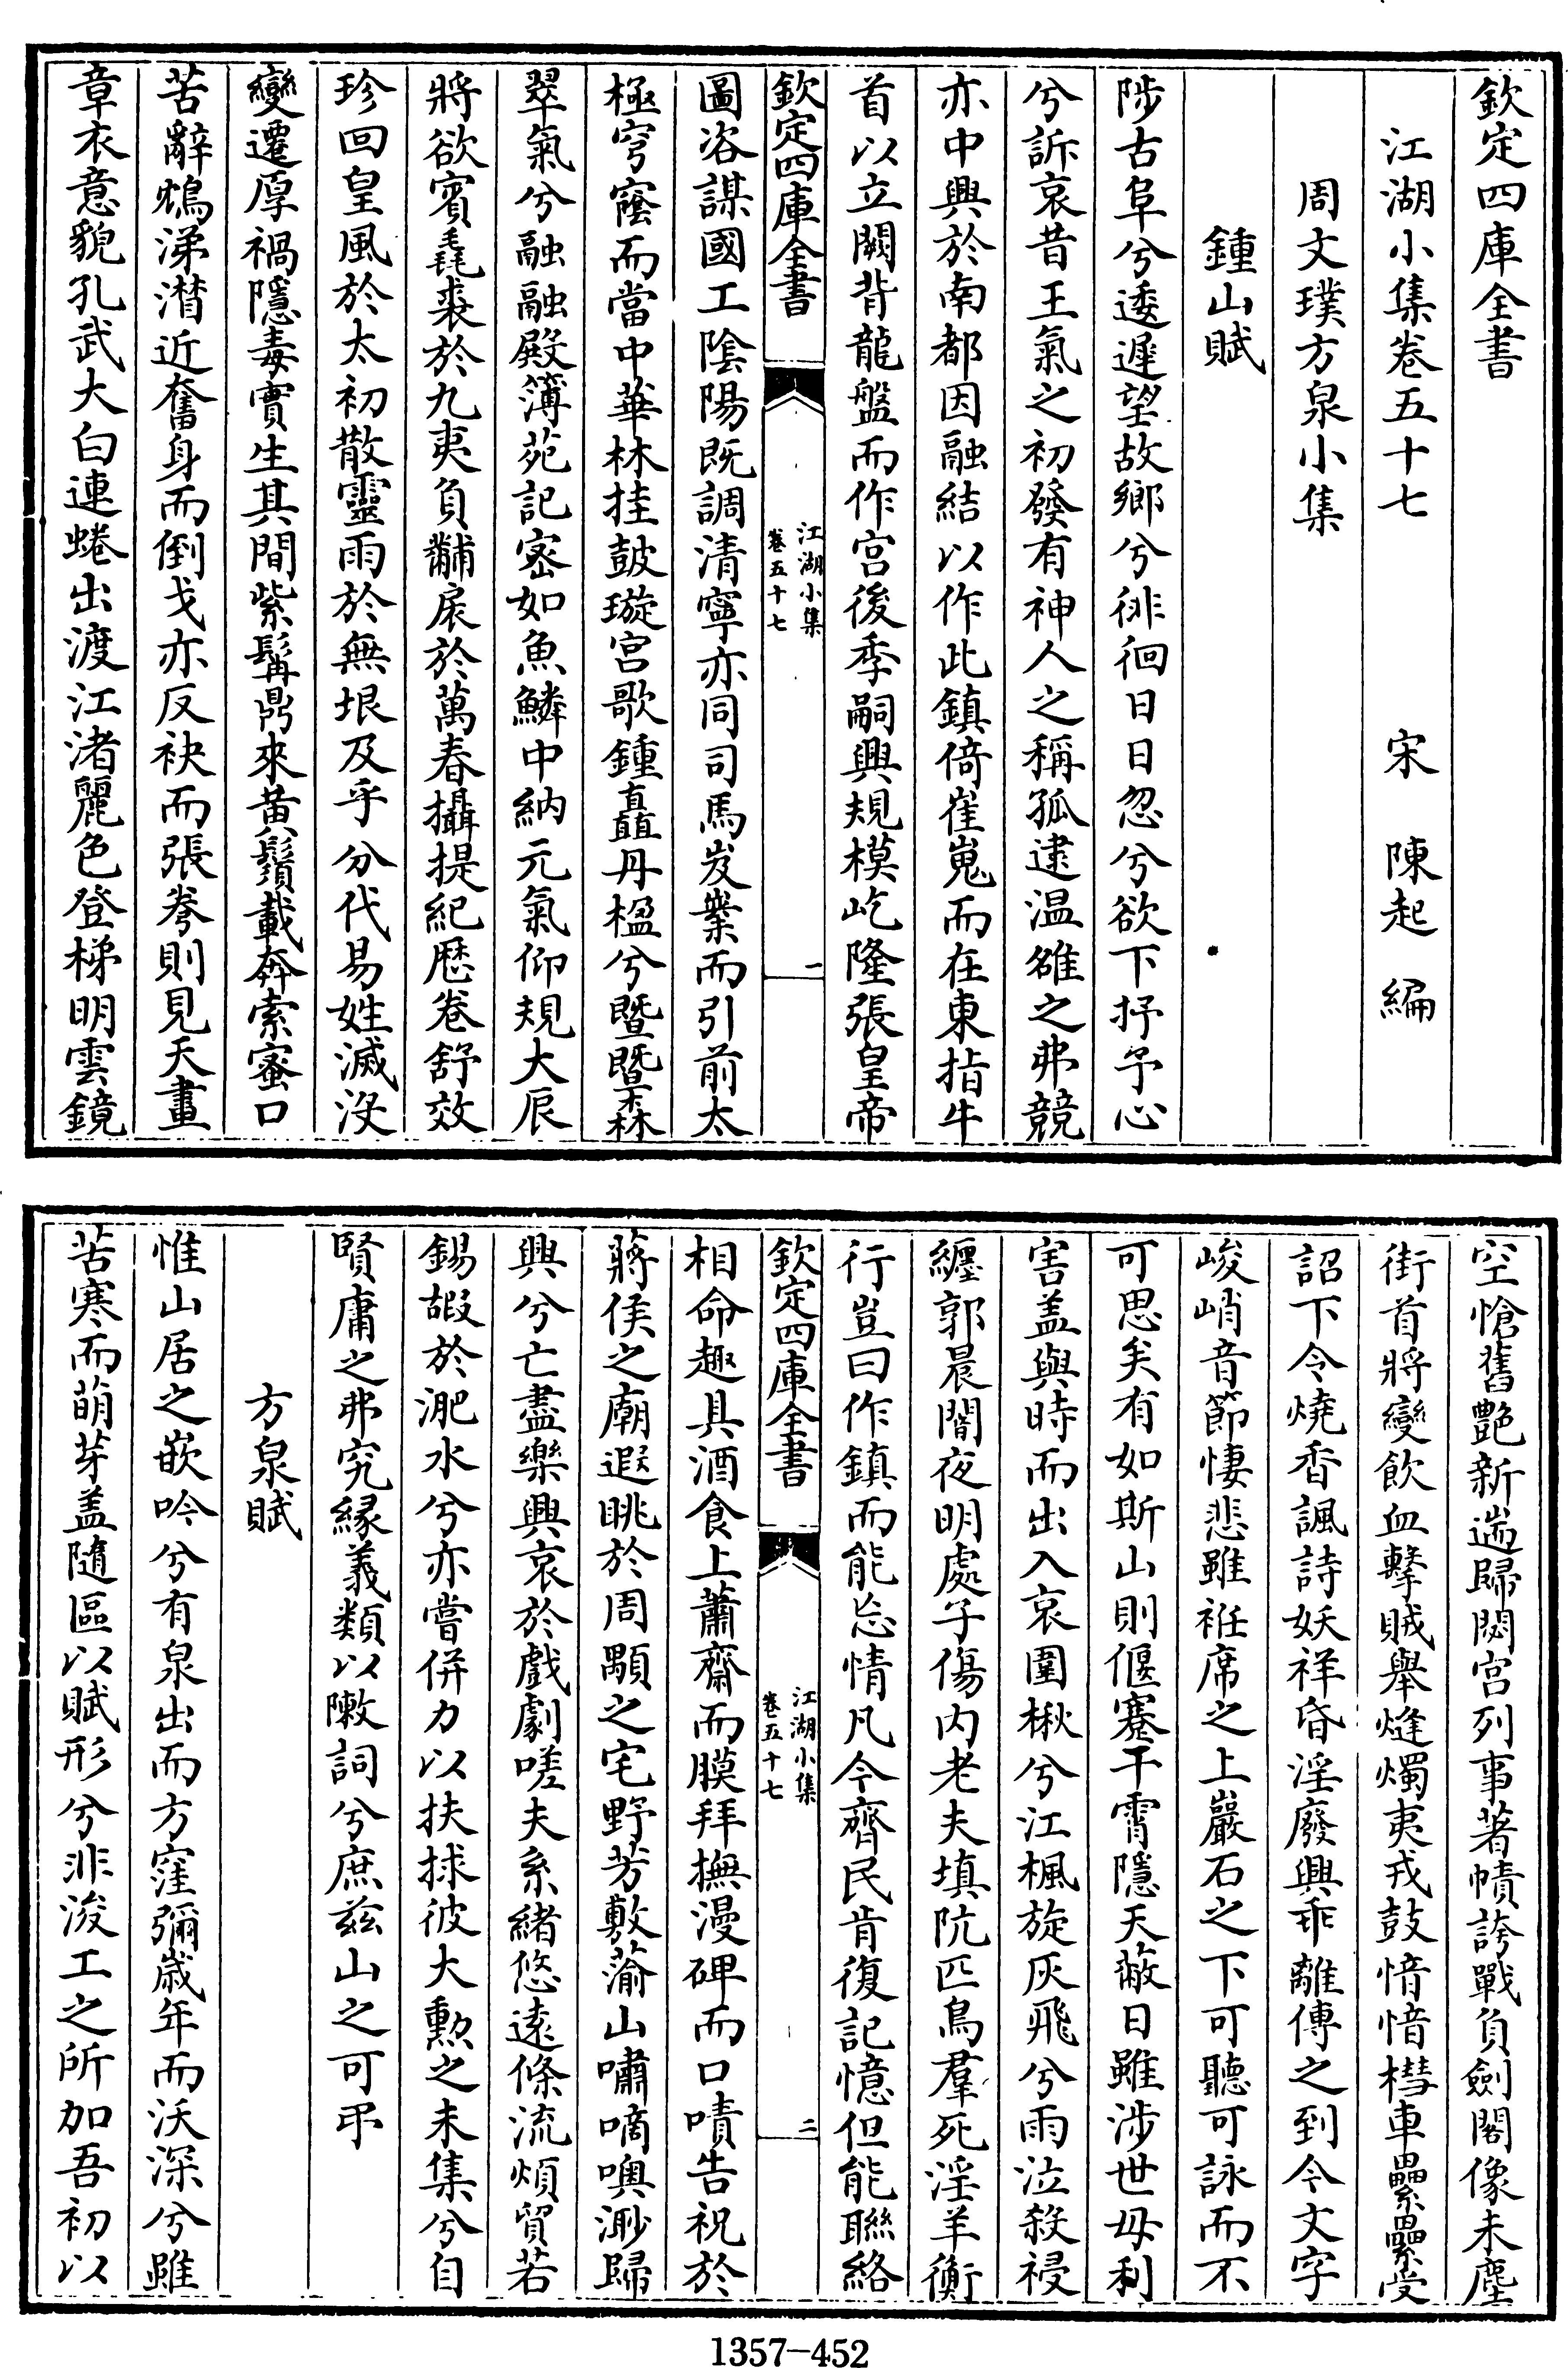 欽定四庫全書
江湖小集卷五十七　宋　陳起　編
周文璞方泉小集
鍾山賦
陟古阜兮逶遲望故鄉兮徘徊日日忽兮欲下抒予心
兮訴哀昔王氣之初發有神人之稱孤逮温雒之弗競
亦中興於南都因融結以作此鎮倚崔嵬而在東指牛
首以立闕背龍盤而作宫後季嗣興規模屹隆張皇帝
欽定四庫全書
江湖小集
卷五十七
一
圖咨謀國工陰陽既調清寧亦同司馬岌業而引前太
極穹窿而當中華林挂鼓璇宫歌鍾矗丹楹兮暨暨森
翠氣兮融融殿簿苑記宻如魚鱗中納元氣仰規大辰
將欲賓毳裘於九夷負黼扆於萬春攝提紀厯卷舒效
珍回皇風於太初散靈雨於無垠及乎分代易姓滅没
變遷厚禍隱毒實生其間紫髯鼎來黄鬚載奔索蜜口
苦辭鴆涕濳近奮身而倒戈亦反袂而張拳則見天畫
章衣意貌孔武大白連蜷出渡江渚麗色登梯明雲鏡
空愴舊艷新遄歸閟宫列事著幘誇戰負劍閣像未塵
街首將變飲血擊賊舉燧燭夷戎鼓愔愔轊車纍纍受
詔下令燒香諷詩妖祥昏淫廢興乖離傳之到今文字
峻峭音節悽悲雖袵席之上巖石之下可聽可詠而不
可思矣有如斯山則偃蹇干霄隱天蔽日雖涉世毋利
害盖與時而出入哀圍楸兮江楓旋灰飛兮雨泣殺祲
纒郭晨闇夜明處子傷内老夫填阬匹鳥羣死淫羊衡
行豈曰作鎮而能忘情凡今齊民肯復記憶但能聯絡
欽定四庫全書
江湖小集
卷五十七
二
相命趣具酒食上蕭齋而膜拜撫漫碑而口嘖告祝於
蔣侯之廟遐眺於周顒之宅野芳敷蕍山嘯嘀噢渺歸
興兮亡盡樂興哀於戲劇嗟夫系緒悠遠條流煩貿若
錫嘏於淝水兮亦嘗併力以扶捄彼大勲之未集兮自
賢庸之弗究緣義類以敶詞兮庶兹山之可弔
方泉賦
惟山居之嵌吟兮有泉出而方窪彌歲年而沃深兮雖
苦寒而萌芽盖隨區以賦形兮非浚工之所加吾初以
1357-452